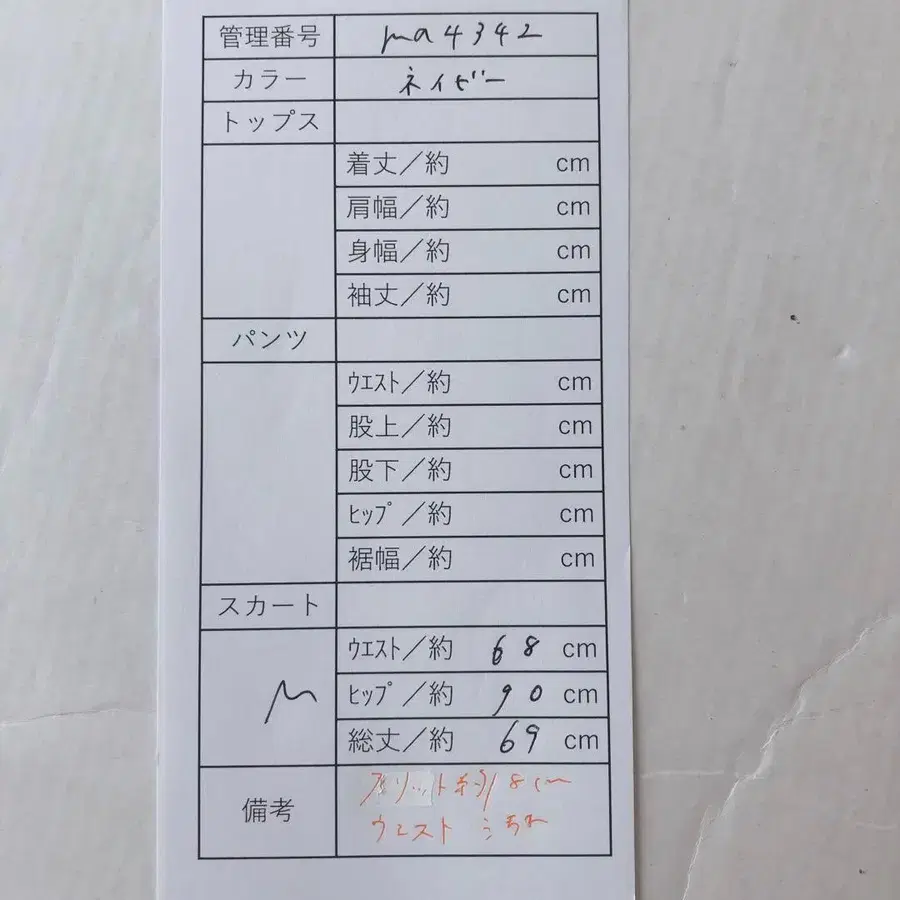 管理番号 ma4342
カラー ネイビー
トップス
着丈／約 cm
肩幅／約 cm
身幅／約 cm
袖丈／約 cm
パンツ
ウエスト／約 cm
股上／約 cm
股下／約 cm
ヒップ／約 cm
裾幅／約 cm
スカート
M
ウエスト／約 68 cm
ヒップ／約 90 cm
総丈／約 69 cm
備考
スリット約18cm
ウエスト